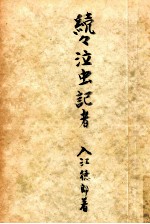 続々泣虫記者
入江徳郎著